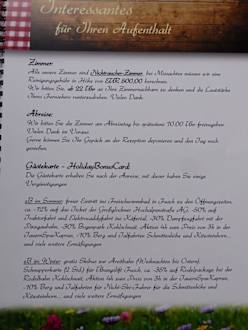 Interessantes
für Ihren Aufenthalt
Zimmer:
Alle unsere Zimmer sind Nichtraucher-Zimmer, bei Missachten müssen wir eine
Reinigungsgebühr in Höhe von EUR 500,00 berechnen.
Wir bitten Sie, ab 22 Uhr an Ihre Zimmernachbarn zu denken und die Lautstärke
Ihres Fernsehers runterzudrehen. Vielen Dank.
Abreise:
Wir bitten Sie die Zimmer am Abreisetag bis spätestens 10.00 Uhr freizugeben.
Vielen Dank im Voraus.
Gerne können Sie Ihr Gepäck an der Rezeption deponieren und den Tag noch
genießen.
Gästekarte – HolidayBonusCard:
Die Gästekarte erhalten Sie nach der Anreise, mit dieser haben Sie einige
Vergünstigungen
zB im Sommer: freier Eintritt im Freischwimmbad in Fusch zu den Öffnungszeiten,
ca. -10% auf das Ticket der Großglockner Hochalpenstraße AG, -50% auf
und Elektroradfahrten im Käfertal, -30% Dampflugfahrt mit der
Pinzgaubahn, -30% Bergopark Kohlschnait, Aktion 4h zum Preis von 3h in der
TauernSpaKaprun, -10% Berg und Talfahrten Schmittenhöhe und Kitzsteinhorn,
und viele weitere Ermäßigungen
zB im Winter: gratis Skibus zur Areitbahn (Weihnachten bis Ostern),
Schnupperkarte (2 Std.) für Übungslift Fusch, ca. -35% auf Rodelpackage bei der
Rodelbahn Kohlschnait, Aktion 4h zum Preis von 3h in der TauernSpaKaprun,
-10% Berg und Talfahrten für Nicht-Ski-Fahrer für die Schmittenhöhe und
Kitzsteinhorn... und viele weitere Ermäßigungen